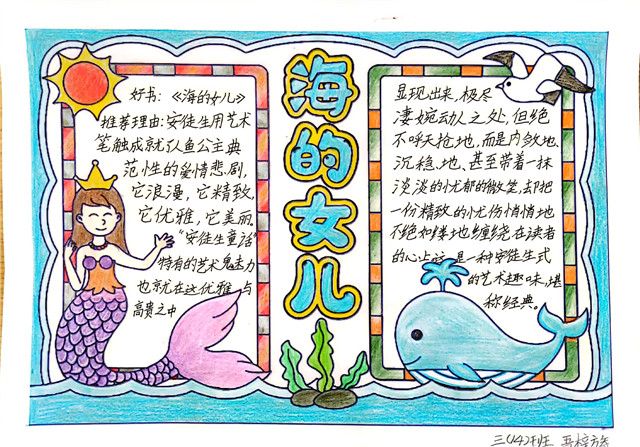 海的女儿
好书:《海的女儿》
推荐理由:安徒生用艺术
笔触成就了人鱼公主典
范性的爱情悲剧,
它浪漫,它精致,
它优雅,它美丽
“安徒生童话”
特有的艺术魅力
也就在这优雅与
高贵之中
显现出来,极尽
凄婉动人之处,但绝
不呼天抢地,而是内敛地、
沉稳地、甚至带着一抹
淡淡的忧郁的微笑,却把
一份精致的忧伤悄悄地
不绝如缕地缠绕在读者
的心上这是一种安徒生式
的艺术趣味,堪
称经典。
三(14)班